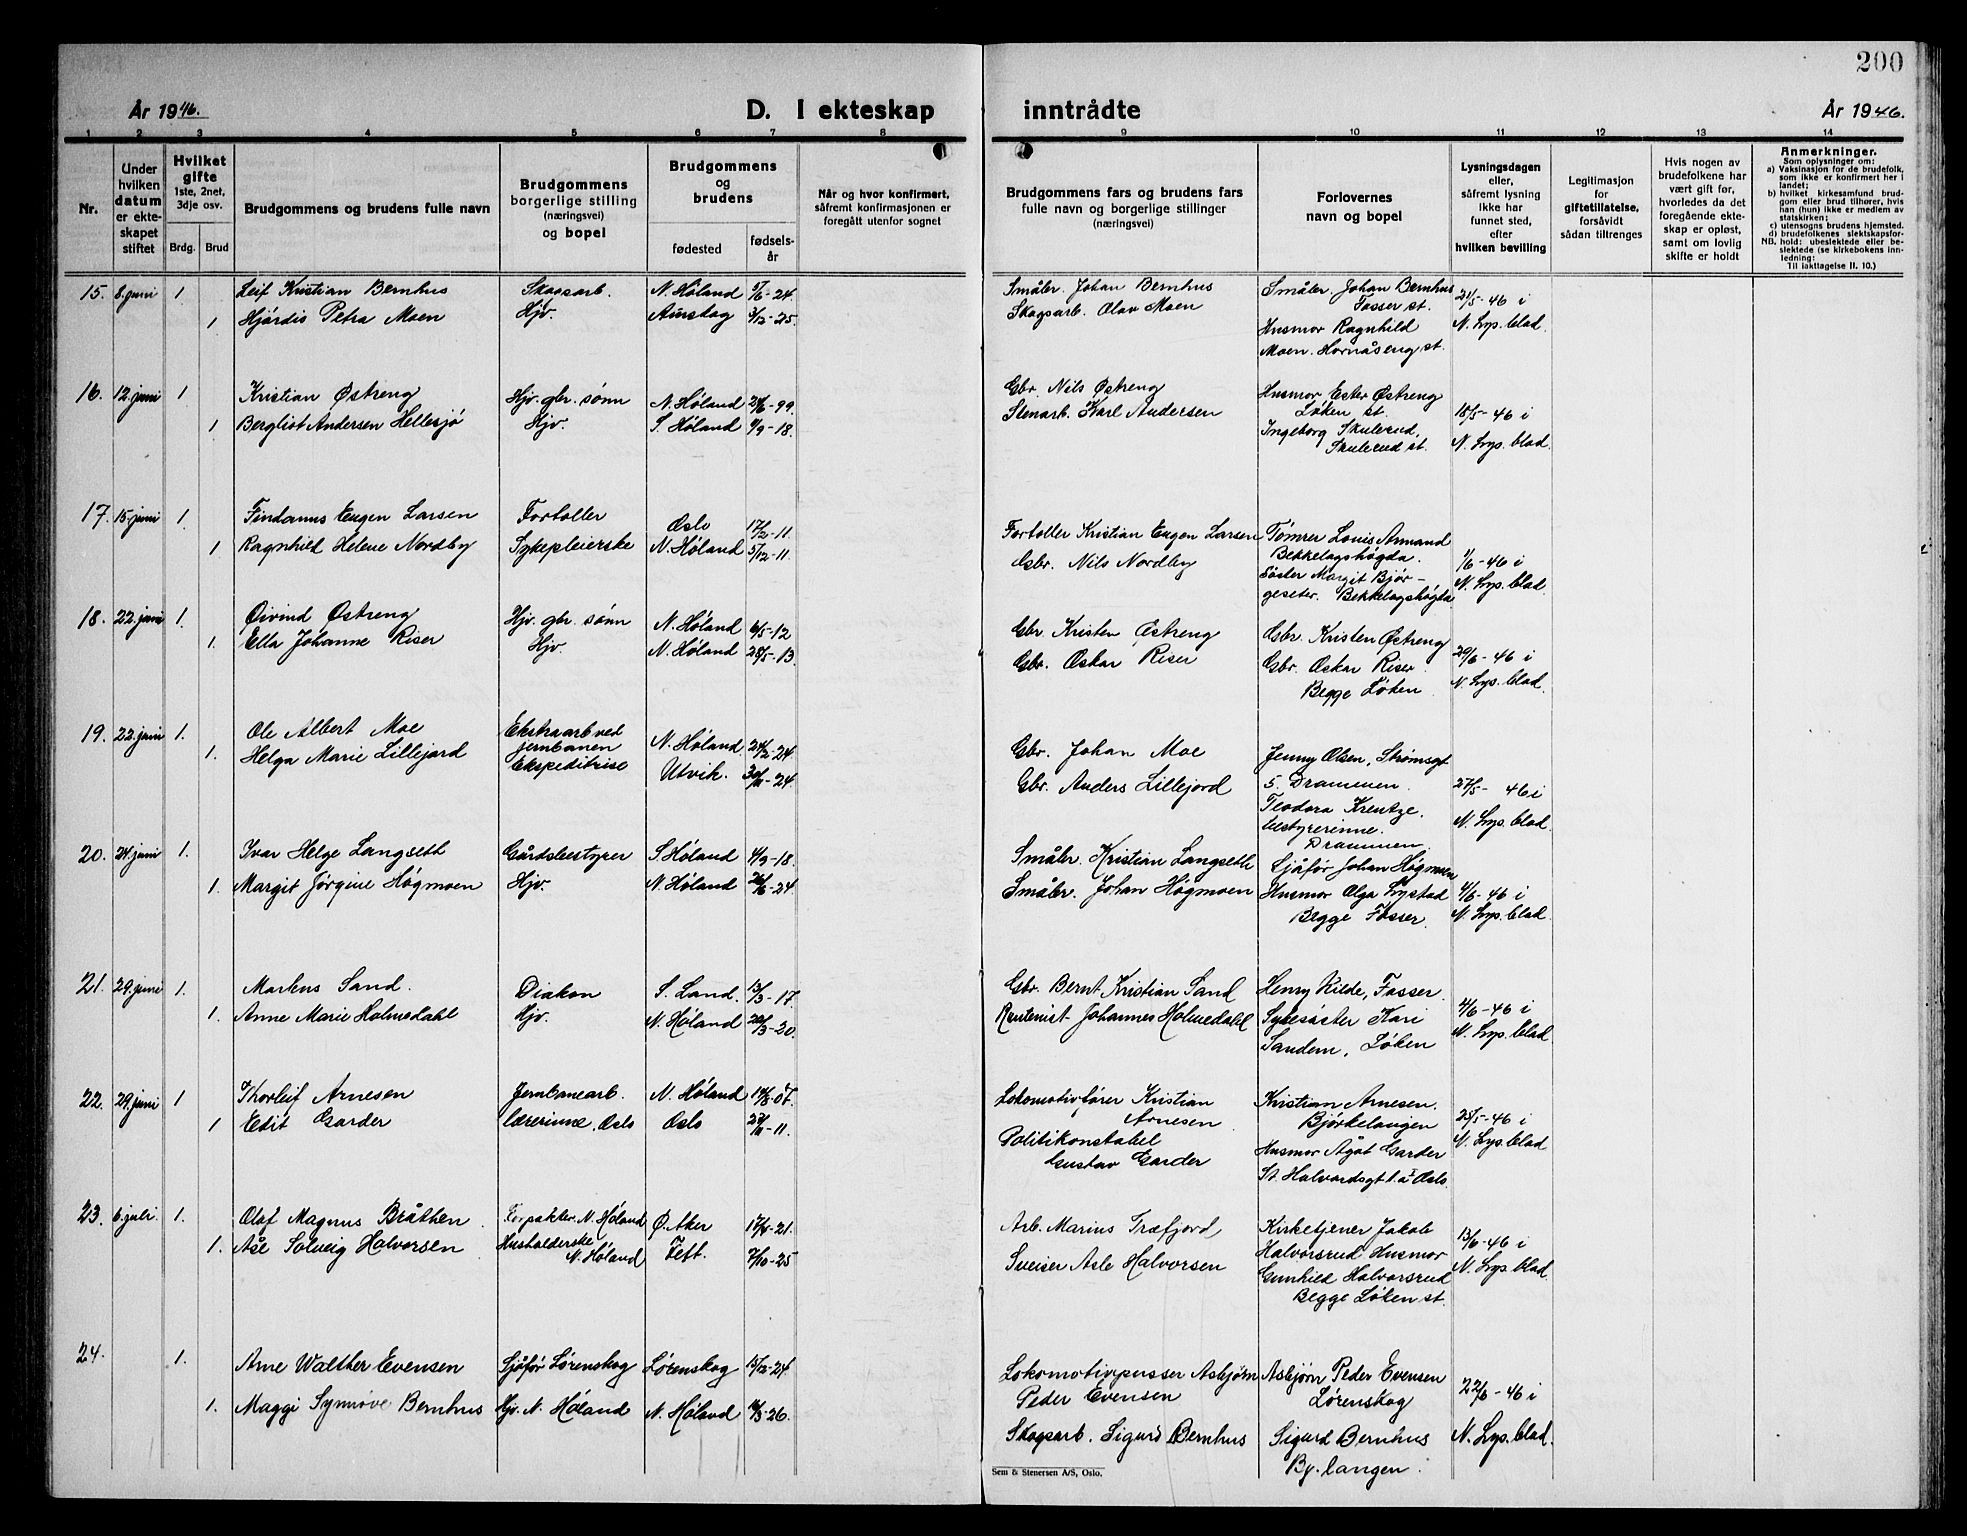 200
År 1946.
D. I ekteskap
inntrådte
År 1946.
1 2 3 4 5 6 7 8 9 10 11 12 13 14
Nr.
Under hvilken datum er ekteskapet stiftet
Hvilket gifte
1ste, 2net, 3dje osv.
Brdg. Brud
Brudgommens og brudens fulle navn
Brudgommens borgerlige stilling (næringsvei) og bopel
Brudgommens og brudens
fødested
fødselsår
Når og hvor konfirmert,
såfremt konfirmasjonen er
foregått utenfor sognet
Brudgommens fars og brudens fars
fulle navn og borgerlige stillinger
(næringsvei)
Forlovernes
navn og bopel
Lysningsdagen
eller,
såfremt lysning
ikke har
funnet sted,
efter
hvilken bevilling
Legitimasjon
for
giftetillatelse,
forsåvidt
sådan tiltrenges
Hvis nogen av
brudefolkene har
vært gift før,
hvorledes da det
foregående ekte-
skap er opløst,
samt om lovlig
skifte er holdt
Anmerkninger.
Som oplysninger om:
a) Vaksinasjon for de brudefolk,
som ikke er konfirmert her i
landet;
b) hvilket kirkesamfund brud-
gom eller brud tilhører, hvis
han (hun) ikke er medlem av
statskirken;
c) utensogns brudens hjemsted.
d) brudefolkenes slektskapsfor-
NB. hold: ubeslektede eller be-
slektede (se kirkebokens inn-
ledning:
Til iakttagelse II. 10.)
15. 8. juni 1 Leif Kristian Bernhus Skogsarb. N. Høland 5/6-24 Småbr. Johan Bernhus Småbr. Johan Bernhus 21/5-46 i
Fosser st.
1 Hjördis Petra Moen Hjv. Aurskog 3/12-25. Skogsarb. Olav Moen Husmor Ragnhild N. Lys. blad.
Moen. Hornåseng st.
16. 12. juni 1 Kristian Østreng Hjv. gbr. sønn N. Høland 29/6-99 Gbr. Nils Østreng Husmor Ester Østreng
Løken st. 18/5-46 i
1 Bergliot Andersen Hellesjø Hjv. S. Høland 9/9-18. Stenarb. Karl Andersen Ingeborg Skulerud, N. Lys. blad.
Skulerud st.
17. 15. juni 1. Eugen Larsen Fortoller Oslo 17/2-11. Fortoller Kristian Eugen Larsen Tømrer Louis Armand
Bekkelagshøgda. 1/6-46 i
1 Ragnhild Helene Nordby Sykepleierske N. Høland 5/12-11. Gbr. Nils Nordby Søster Margit Bjør- N. Lys. blad
geseter. Bekkelagshøgda
18. 22. juni 1. Øivind Østreng Hjv. gbr. sønn N. Høland 6/5-12 Gbr. Kristen Østreng Gbr. Kristen Østreng 29/6-46 i
1. Ella Johanne Riser Hjv. N. Høland 28/5-13. Gbr. Oskar Riser Gbr. Oskar Riser N. Lys. blad.
Begge Løken
19. 22. juni 1. Ole Albert Moe Ekstraarb ved
jernbanen N. Høland 24/2-24 Gbr. Johan Moe Jenny Olsen, Strømsgt
5. Drammen. 27/5-46 i
1. Helga Marie Lillejord Ekspeditrise Utvik. 30/11-24. Gbr. Anders Lillejord Teodora Krentze, N. Lys. blad
bestyrerinne.
Drammen.
20. 24. juni 1. Ivar Helge Langseth Gårdsbestyrer S. Høland 4/9-18. Småbr. Kristian Langseth Sjåfør Johan Högmoen
1. Margit Jörgine Högmoen Hjv. N. Høland 26/6-24. Småbr. Johan Högmoen Husmor Olga Lystad 4/6-46 i
Begge Fosser. N. Lys. blad
21. 29. juni 1. Martens Sand. Diakon S. Land. 13/3-17 Gbr. Bernt Kristian Sand Henry Kilde, Fosser 4/6-46 i
1. Anne Marie Holmedahl Hjv. N. Høland 22/3-20. Rentenist Johannes Holmedahl Sykesöster Kari N. Lys. blad
Sandem, Løken
22. 29. juni 1 Thorleif Arnesen Jernbanearb. N. Høland 14/8-07. Lokomotivfører Kristian
Arnesen Kristian Arnesen.
Bjørkelangen 25/5-46 i
1 Edit Garder lærerinne, Oslo Oslo 27/11-11. Politikonstabel
Gustav Garder Husmor Ågot Garder N. Lys. blad
St. Halvordsgt 1. a Oslo.
23. 6. juli. 1. Olaf Magnus Bråthen Forpakter N. Høland Ø. Aker 17/4-21. Arb. Marius Træfjord Kirketjener Jakob 13/6-46 i
1. Åse Solveig Halvorsen Husholderske
N. Høland Teft. 7/10-25 Sveiser Asle Halvorsen Halvorsrud Husmor N. Lys. blad.
Gunhild Halvorsrud
Begge Løken st.
24. 1. Arne Walther Evensen Sjåfør Lørenskog Lørenskog 15/12-24. Lokomotivpusser Asbjørn
Peder Evensen Asbjørn Peder Evensen
Lørenskog 22/6-46 i
1. Maggi Synnöve Bernhus Hjv. N. Høland N. Høland 14/3-26. Skogsarb. Sigurd Bernhus Sigurd Bernhus N. Lys. blad.
Bj. langen.
Sem & Stenersen A/S, Oslo.